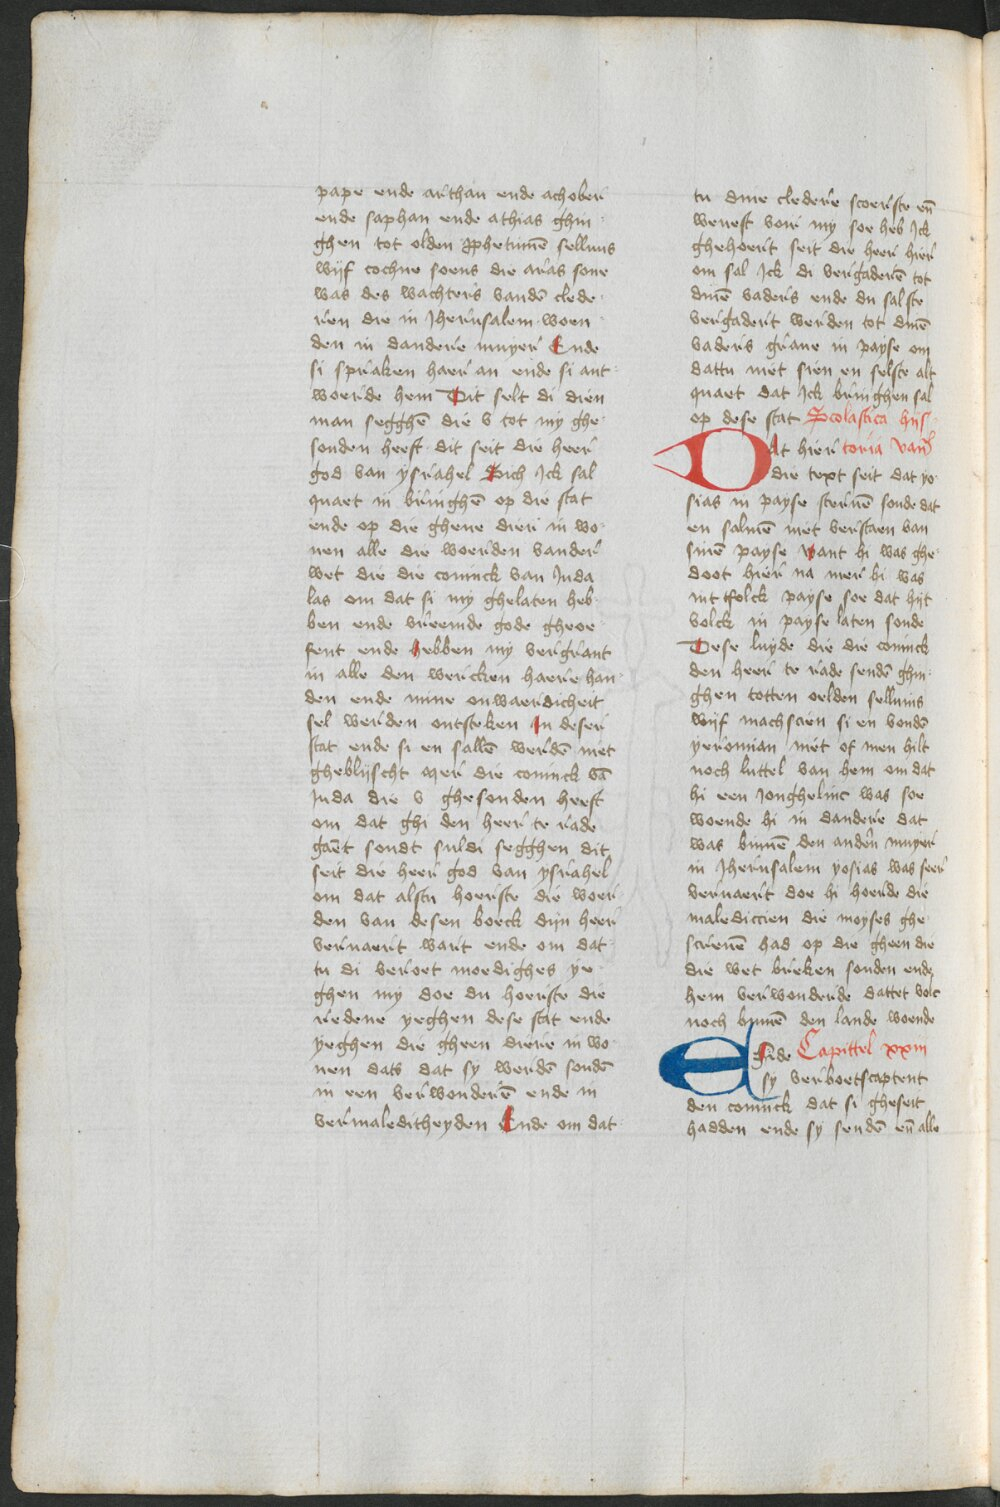 pape ende arthan ende achober
ende saphan ende athias ghin
ghen tot olden prophetinnē sellums
wijf cochne soens die aras sone
was des wachters vandē clede
ren die in Jherusalem woen
den in dandere muyer Ende
si spraken haer an ende si ant
woerde hem Dit selt di dien
man segghē die v tot my ghe
sonden heeft dit seit die heer
god van ysrahel Sich Jck sal
quaet in bringhē op die stat
ende op die ghene dier in wo
nen alle die woerden vander
wet die die coninck van Juda
las om dat si my ghelaten heb
ben ende vreemde gode gheoe
fent ende hebben my vergrant
in alle den wercken haere han
den ende mine onwaerdicheit
sel werden ontsteken In deser
stat ende si en sallē werdē niet
gheblijscht Mer die coninck vā
Juda die v ghesonden heeft
om dat ghi den heer te rade
gaet sondt suldi segghen dit
seit die heer god van ysrahel
om dat alstu hoerste die woer
den van desen boeck dijn heer
vernaert wart ende om dat
tu di veroet moedighes ye
ghen my doe du hoerste die
redene yeghen dese stat ende
yeghen die gheen diere in wo
nen dats dat sy werdē sondē
in een verwonderē ende in
vermaleditheyden Ende om dat
tu dine cledere scoerste eñ
weneft voir my soe heb Jck
ghehoert seit die heer hier
om sal Jck di vergaderē tot
dinē vaders ende du salste
vergadert werden tot dinē
vaders grave in payse om
dattu niet sien en selste alt
quaet dat Jck bringhen sal
op dese stat Scolastica hijs
Dat hier toria vand
die text seit dat yo
sias in payse stervē sonde dat
en salmē niet verstaen van
sinē payse want hi was ghe
doot hier na mer hi was
int tfolck payse soe dat hijt
volck in payse laten sonde
Dese luyde die die coninck
den heer te rade sendē ghin
ghen totten oelden sellums
wijf machscien si en vondē
yeromian niet of men hilt
noch luttel van hem om dat
hi een Jonghelinc was soe
woende hi in dandere dat
was binnē den anderē muyer
in Jherusalem yosias was seer
vernaert doe hi hoerde die
malediccien die moyses ghe
screuē had op die gheen die
die wet breken souden ende
hem verwonderde dattet volc
noch binnē den lande woende
Ende Capittel xxiii
sy verboetscaptent
den coninck dat si gheseit
hadden ende sy sendē eñ alle